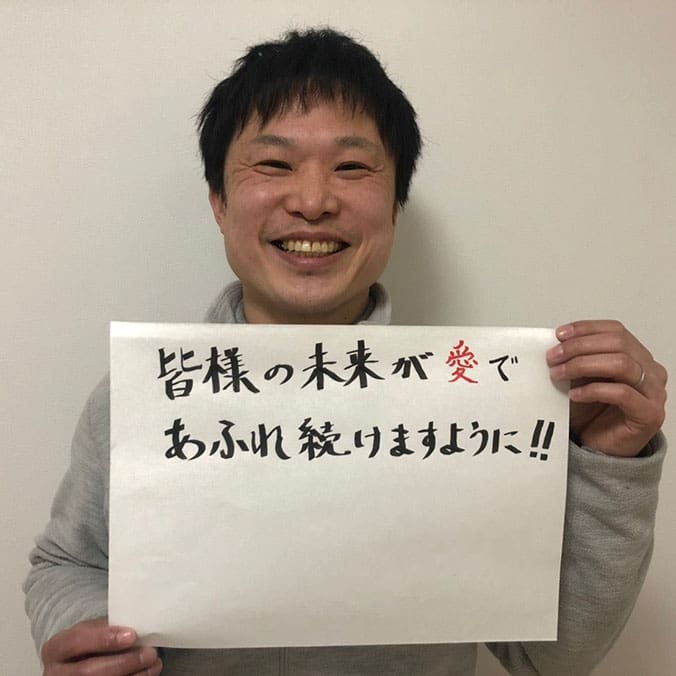 皆様の未来が愛で
あふれ続けますように!!